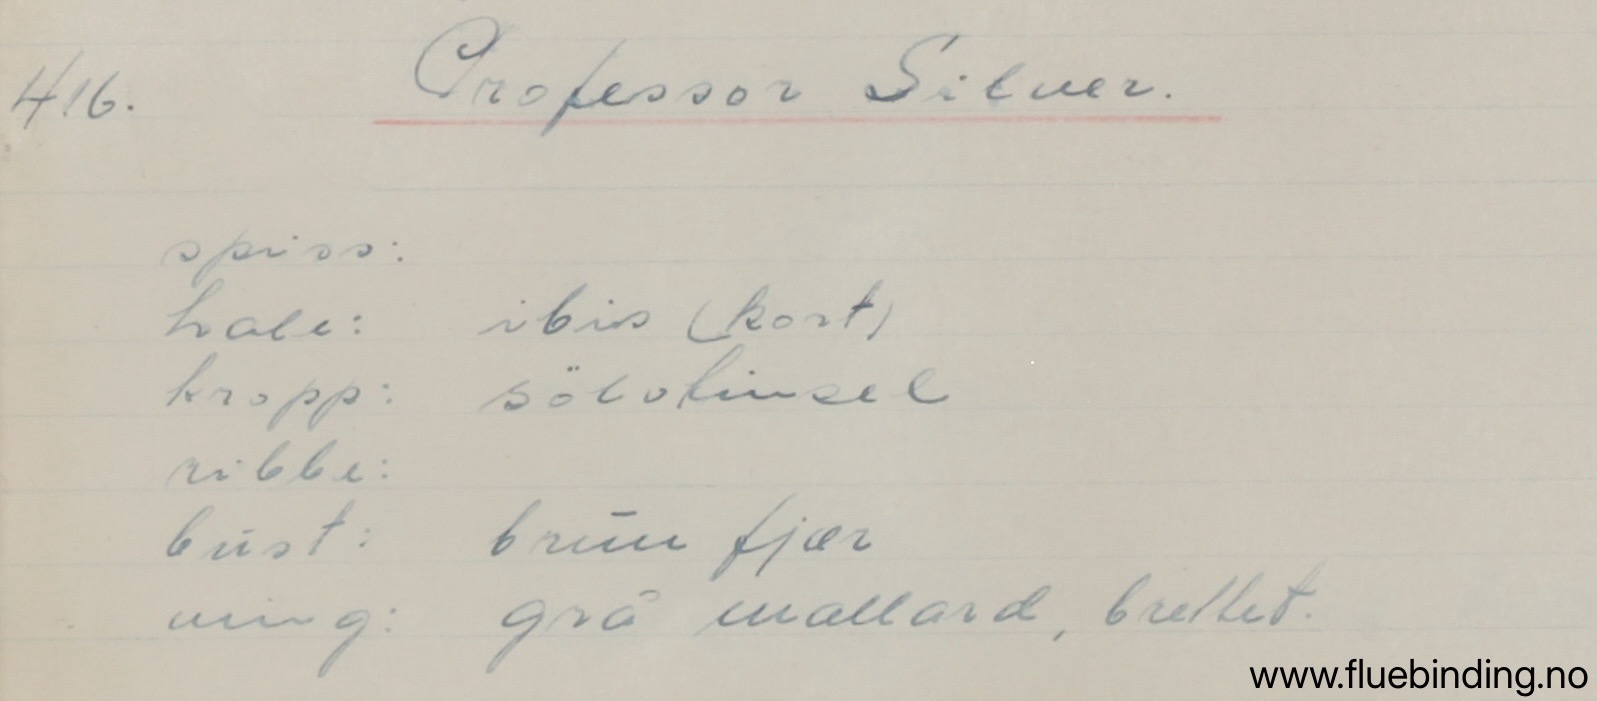 416. Professor Silver.
spiss:
hale: ibis (kort)
kropp: sölvtinsel
ribbe:
bust: brun fjær
ving: grå mallard, brettet.
www.fluebinding.no